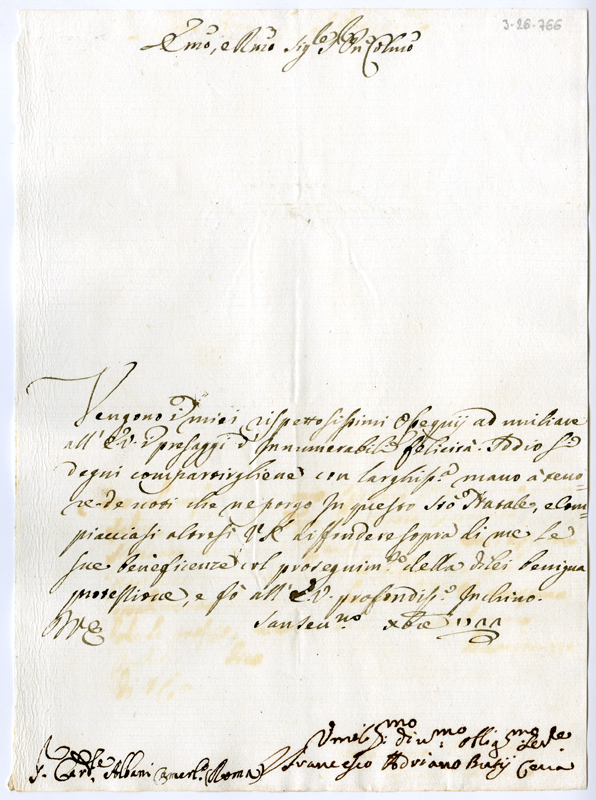 3-26-766
Em̃o, e Rm̃o Sig.re P̃ron Colm̃o
Vengono i miei rispettosissimi Ossequij ad umiliare
all' E.V. i presaggi d' Innumerabili felicità. Iddio si
degni compartirgliene con larghiss.a mano à teno-
re de voti che ne porgo In questo Sto Natale, e Com-
piacciasi altresì V.E. diffondere sopra di me le
sue beneficenze col proseguim.to della di lei benigna
protettione, e fò all' E.V. profondiss.o Inchino.
San Seu.no Xbre
Vmiliss.mo Diu.mo Obblig.mo Ser.re
S. Card.le Albani Camerl.o (Roma)
Francesco Adriano Ceua